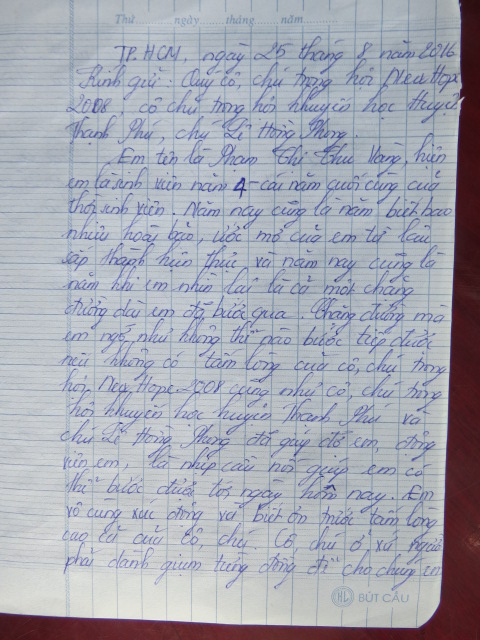 Thứ.........ngày.........tháng.........năm.........
TP. HCM, ngày 25 tháng 8 năm 2016
Kính gửi: Quý cô, chú trong hội New Hope
2008, cô chú trong hội khuyến học Huyện
Thạnh Phú, chú Lê Hồng Phong.
Em tên là Phạm Thị Thu Vàng, hiện
em là sinh viên năm 4 - cái năm cuối cùng của
thời sinh viên. Năm nay cũng là năm biết bao
nhiêu hoài bão, ước mơ của em từ lâu
sắp thành hiện thực và năm nay cũng là
năm khi em nhìn lại là cả một chặng
đường dài em đã bước qua. Chặng đường mà
em ngỡ như không thể nào bước tiếp được
nếu không có tấm lòng của cô, chú trong
hội New Hope 2008 cũng như cô, chú trong
hội khuyến học huyện Thạnh Phú và
chú Lê Hồng Phong đã giúp đỡ em, động
viên em, là nhịp cầu nối giúp em có
thể bước được tới ngày hôm nay. Em
vô cùng xúc động và biết ơn trước tấm lòng
cao cả của Cô, chú. Cô, chú ở xứ người
phải dành giụm từng đồng để cho chúng em
BÚT CẦU